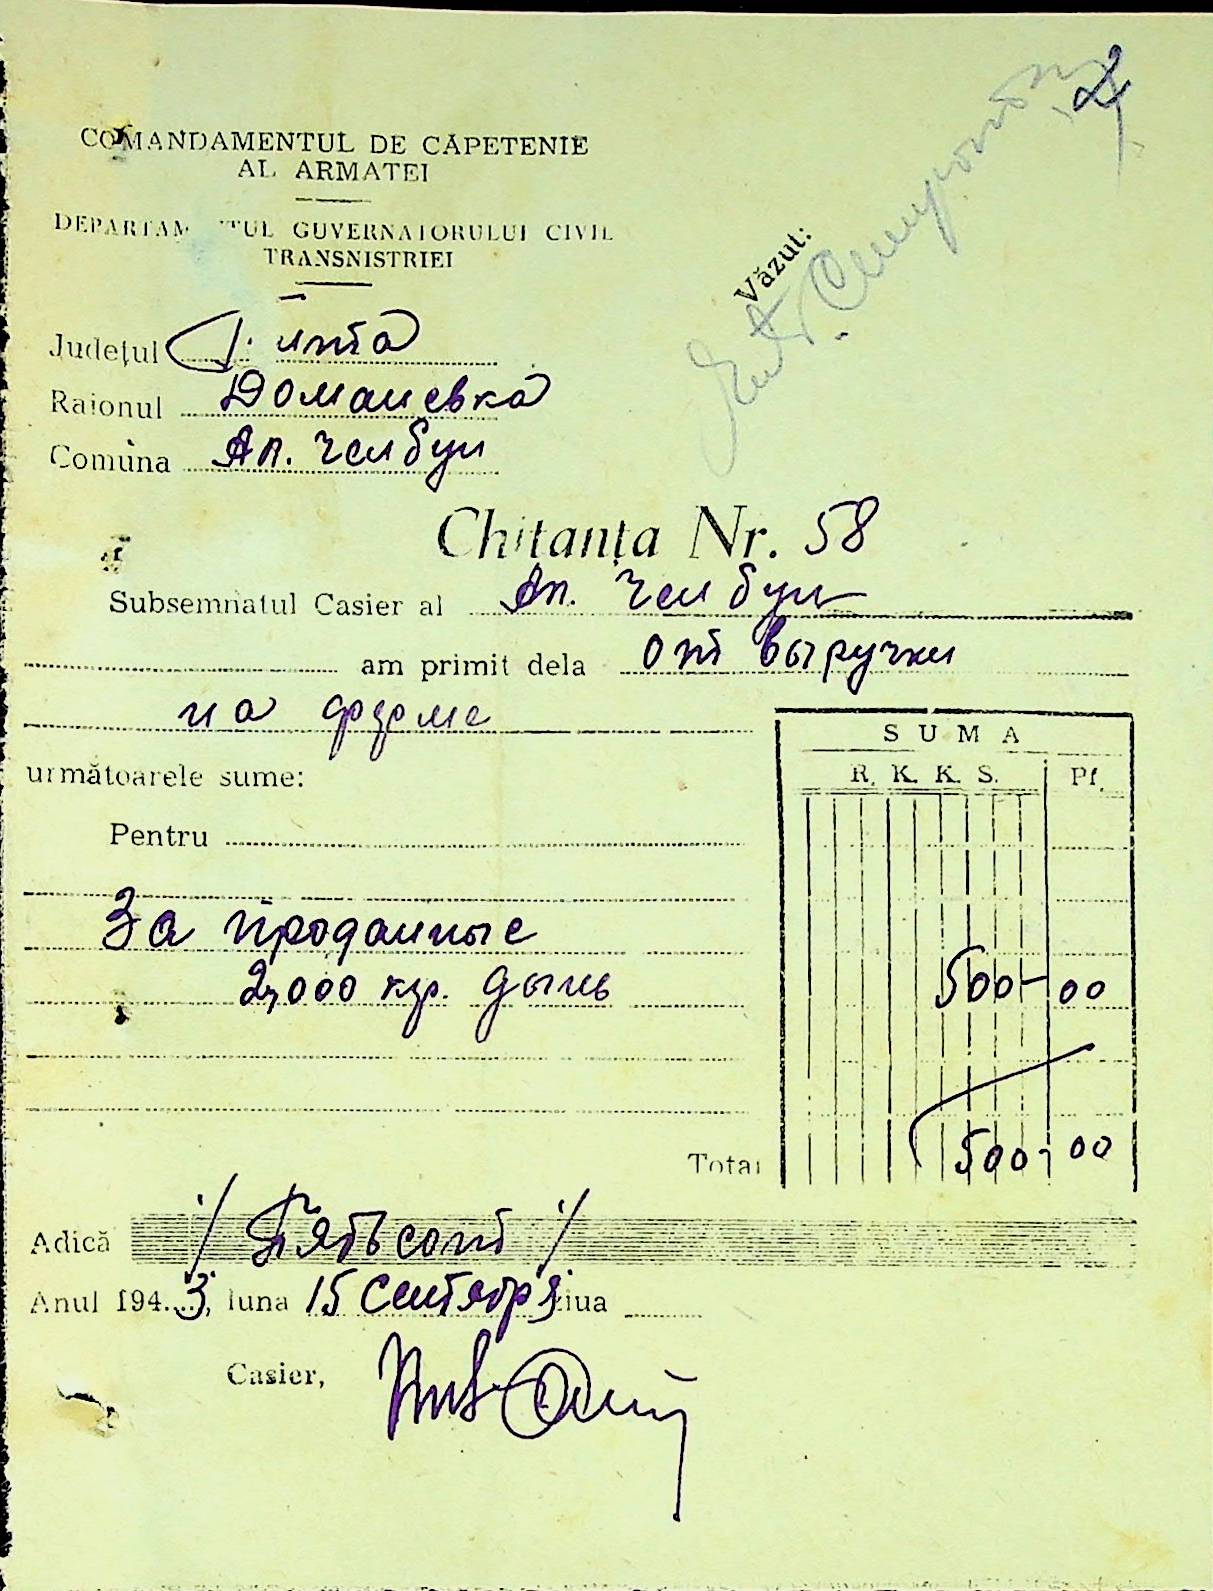 COMANDAMENTUL DE CĂPETENIE
AL ARMATEI
DEPARTAM TUL GUVERNATORULUI CIVIL
TRANSNISTRIEI
Văzut:
Județul Голта
Raionul Доманевка
Comuna Ап. Челбуи
Chitanța Nr. 58
Subsemnatul Casier al Ап. Челбуи
am primit dela от выручки
на ферме
următoarele sume:
SUMA
R. K. K. S. Pf.
Pentru
За проданные
2,000 кгр. дынь 500- 00
Total 500- 00
Adică /Пятьсот/
Anul 194..3, luna 15 Сентября ziua
Casier,